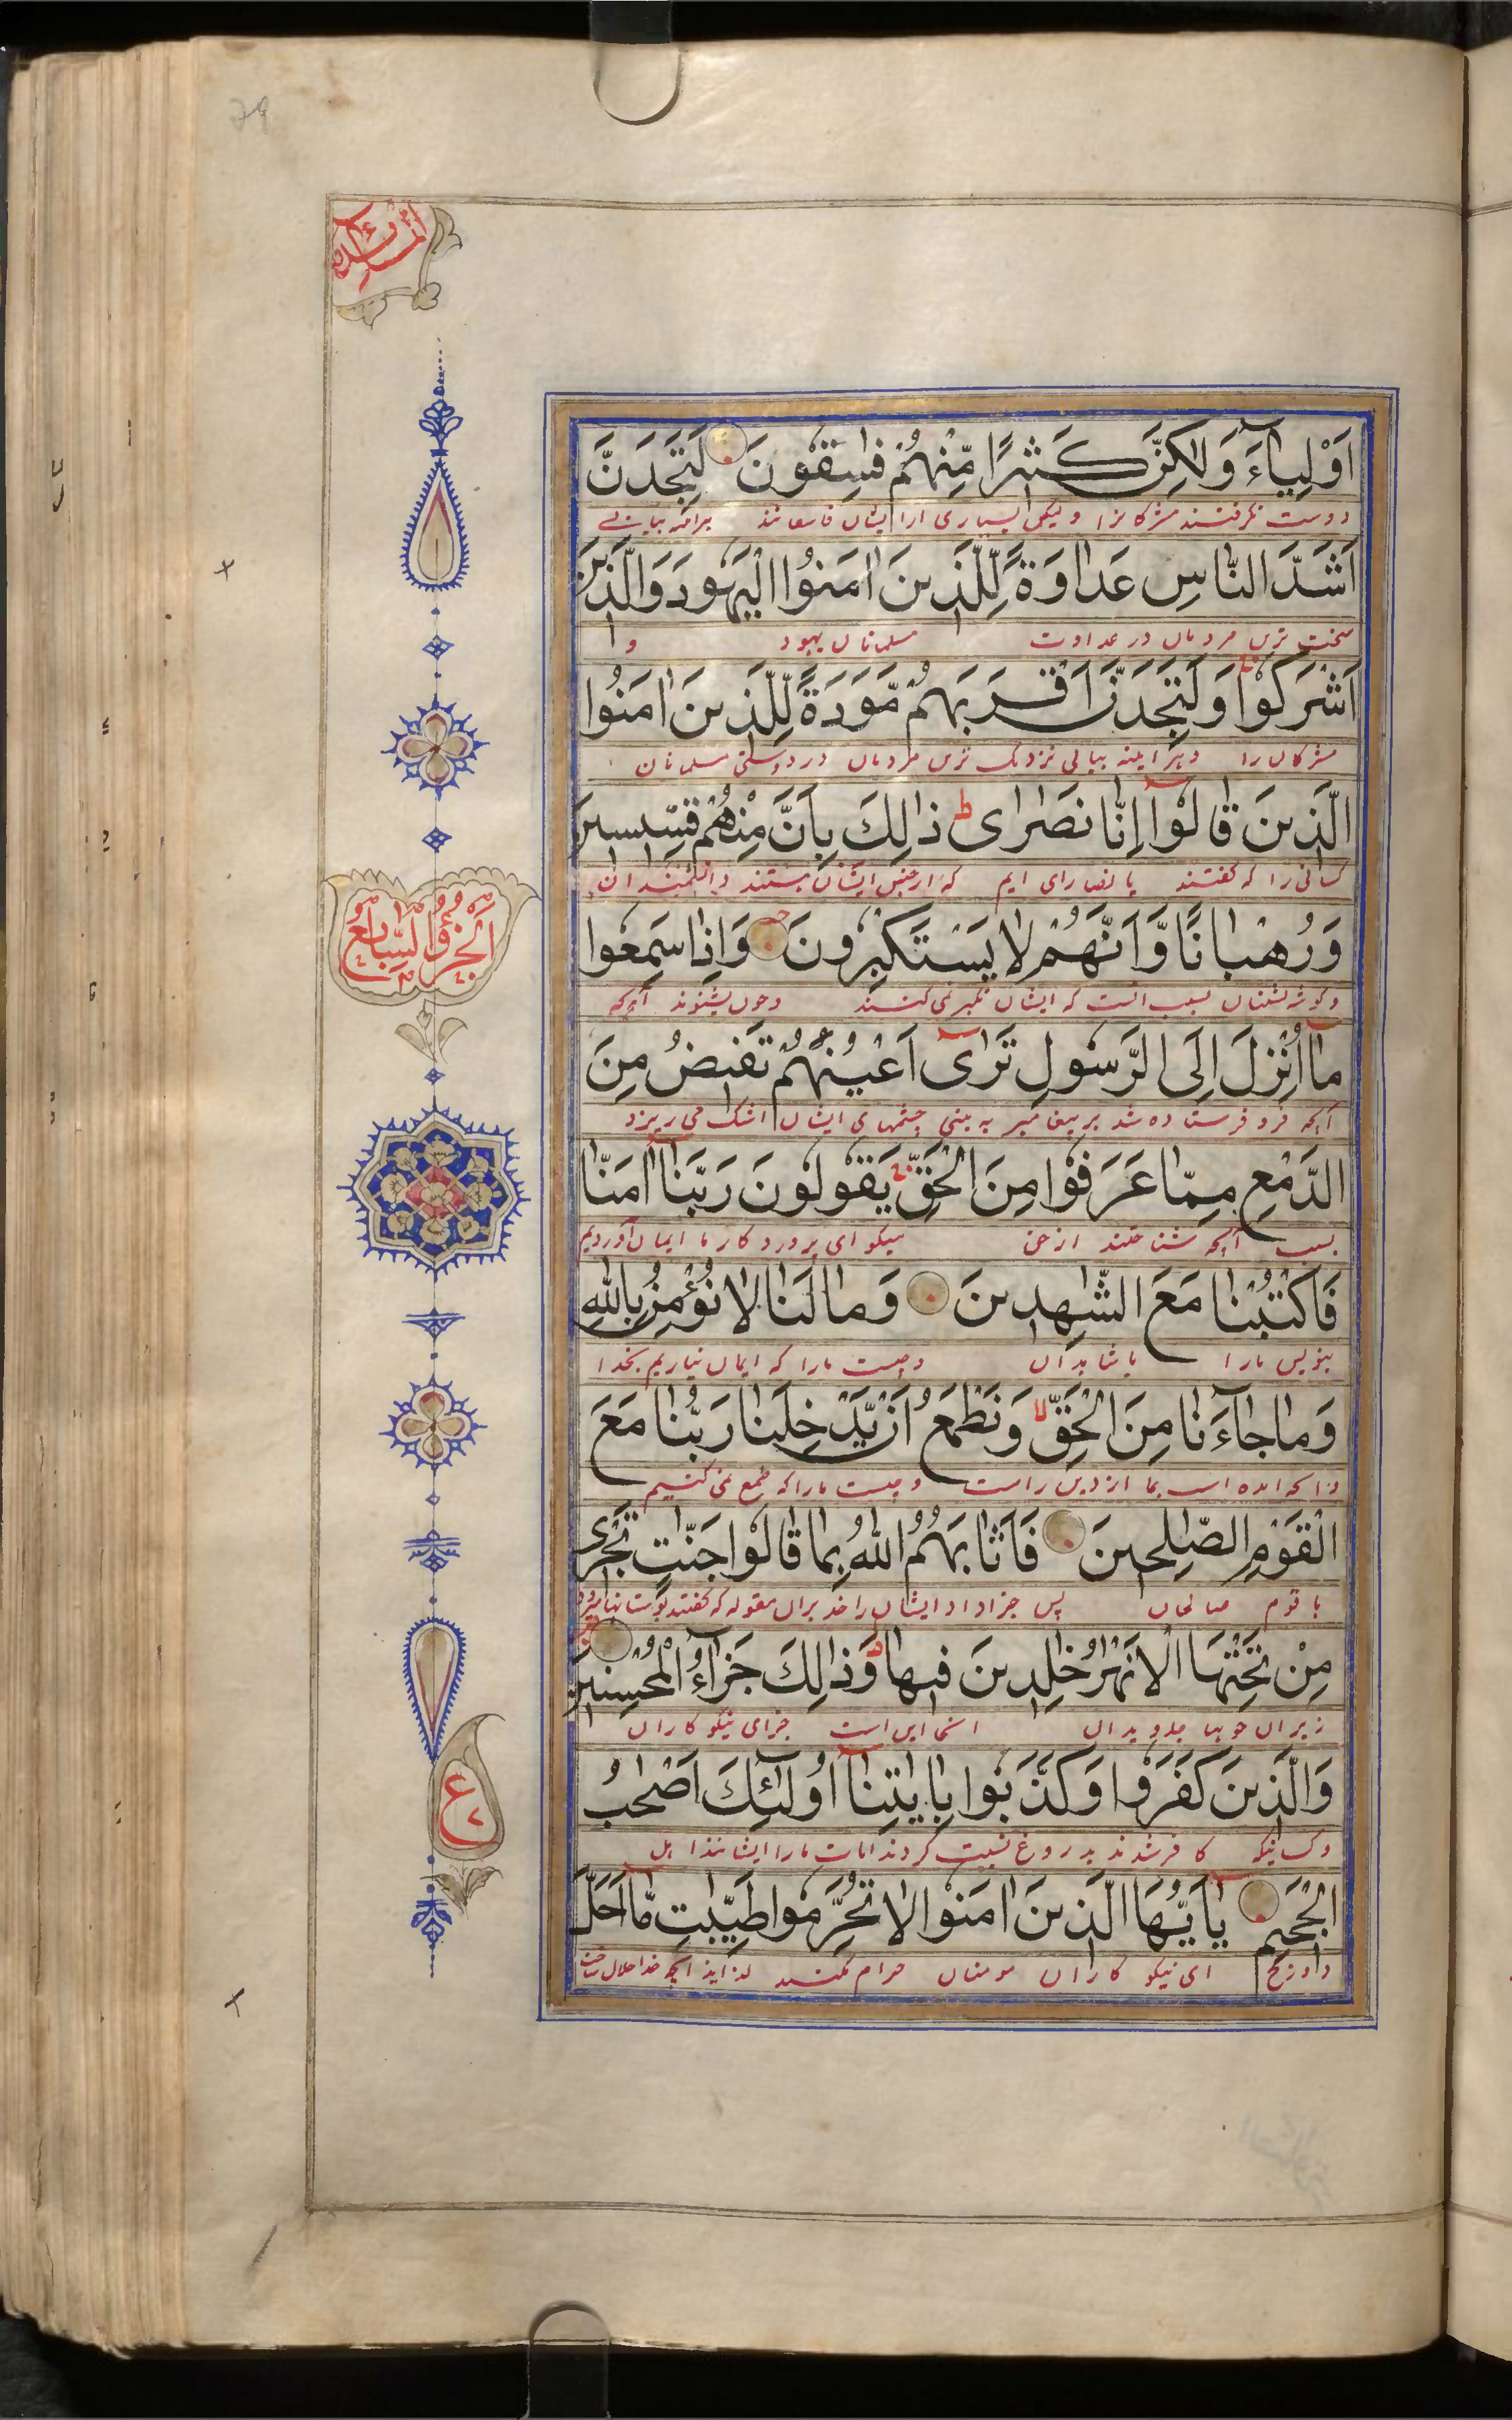 79
المائدة
اَوْلِيٰٓاءَ وَلٰكِنَّ كَثيرًا مِّنْهُمْ فٰسِقُونَ لَتَجِدَنَّ
دوست نگرفتند مشرکانرا ولیکن بسیاری از ایشان فاسقانند
اَشَدَّ النّاسِ عَداوَةً لِّلَّذينَ اٰمَنُوا الْيَهُودَ وَالَّذينَ
سخت ترین مردمان در عداوت مسلمانان یهود و
اَشْرَكُوا وَلَتَجِدَنَّ اَقْرَبَهُمْ مَّوَدَةً لِّلَّذينَ اٰمَنُوا
مشرکان را و هر اینه بیابی نزدیک ترین مردمان در دوستی مسلمانان
الَّذينَ قالُوٓا اِنّا نَصٰرٰى ط ذٰلِكَ بِاَنَّ مِنْهُمْ قِسّيسينَ
کسانی را که گفتند ما نصارای ایم که از جنس ایشان هستند دانشمندان
وَرُهْبانًا وَّاَنَّهُمْ لا يَسْتَكْبِرُونَ وَاِذا سَمِعُوا
وگوشه نشینان بسبب انست که ایشان تکبر نمی کنند وچون بشنوند آنچه
مآ اُنْزِلَ اِلَى الرَّسُولِ تَرٰىٓ اَعْيُنَهُمْ تَفيضُ مِنَ
آنچه فرو فرستاده شد بر پیغامبر به بینی چشمهای ایشان اشک می ریزد
الدَّمْعِ مِمّا عَرَفُوا مِنَ الْحَقِّ يَقُولُونَ رَبَّنآ اٰمَنّا
بسبب آنچه شناختند از حق میگوید ای پروردگار ما ایمان آوردیم
فَاكْتُبْنا مَعَ الشّٰهِدينَ وَما لَنا لا نُؤْمِنُ بِاللّٰهِ
بنویس مارا با شاهدان وچیست مارا که ایمان نیاریم بخدا
وَما جآءَنا مِنَ الْحَقِّ لا وَنَطْمَعُ اَنْ يُّدْخِلَنا رَبُّنا مَعَ
وانچه امده است بما از دین راست وچیست مارا که طمع نمی کنیم
الْقَوْمِ الصّٰلِحينَ فَاَثابَهُمُ اللّٰهُ بِما قالُوا جَنّٰتٍ تَجْرى
با قوم صالحان پس جزا داد ایشان را خدا بران مقوله که گفتند بوستانها
مِنْ تَحْتِهَا الْاَنْهٰرُ خٰلِدينَ فيها ط وَذٰلِكَ جَزآءُ الْمُحْسِنينَ
زیر آن جویها جاویدان انجا این است جزای نیکوکاران
وَالَّذينَ كَفَرُوا وَكَذَّبُوا بِاٰيٰتِنآ اُولٰٓئِكَ اَصْحٰبُ
وکسانیکه کافر شدند بدروغ نسبت کردند ایات مارا ایشانند اهل
الْجَحيمِ يٰاَيُّهَا الَّذينَ اٰمَنُوا لا تُحَرِّمُوا طَيِّبٰتِ مآ اَحَلَّ
دوزخ ای نیکو کاران مومنان حرام مکنید لذایذ انچه خدا حلال ساخت
اَلْجُزْوُ السّابِعُ
ع